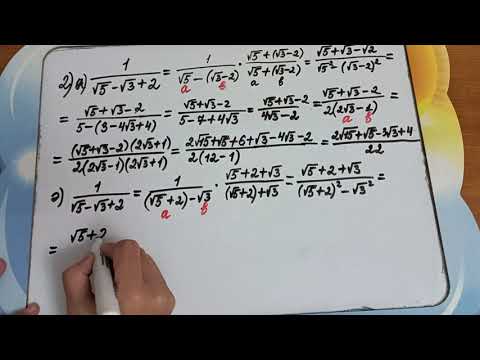 2) a) 1/(√5 - √3 + 2) = 1/(√5 - (√3 - 2)) · (√5 + (√3 - 2))/(√5 + (√3 - 2)) = (√5 + √3 - √2)/(√5² - (√3 - 2)²) =
a b a b
= (√5 + √3 - 2)/(5 - (3 - 4√3 + 4)) = (√5 + √3 - 2)/(5 - 7 + 4√3) = (√5 + √3 - 2)/(4√3 - 2) = (√5 + √3 - 2)/(2(2√3 - 1)) =
a b
= (√5 + √3 - 2)(2√3 + 1)/(2(2√3 - 1)(2√3 + 1)) = (2√15 + √5 + 6 + √3 - 4√3 - 2)/(2(12 - 1)) = (2√15 + √5 - 3√3 + 4)/22
ә) 1/(√5 - √3 + 2) = 1/((√5 + 2) - √3) · (√5 + 2 + √3)/((√5 + 2) + √3) = (√5 + 2 + √3)/((√5 + 2)² - √3²) =
a b
= √5 + 2